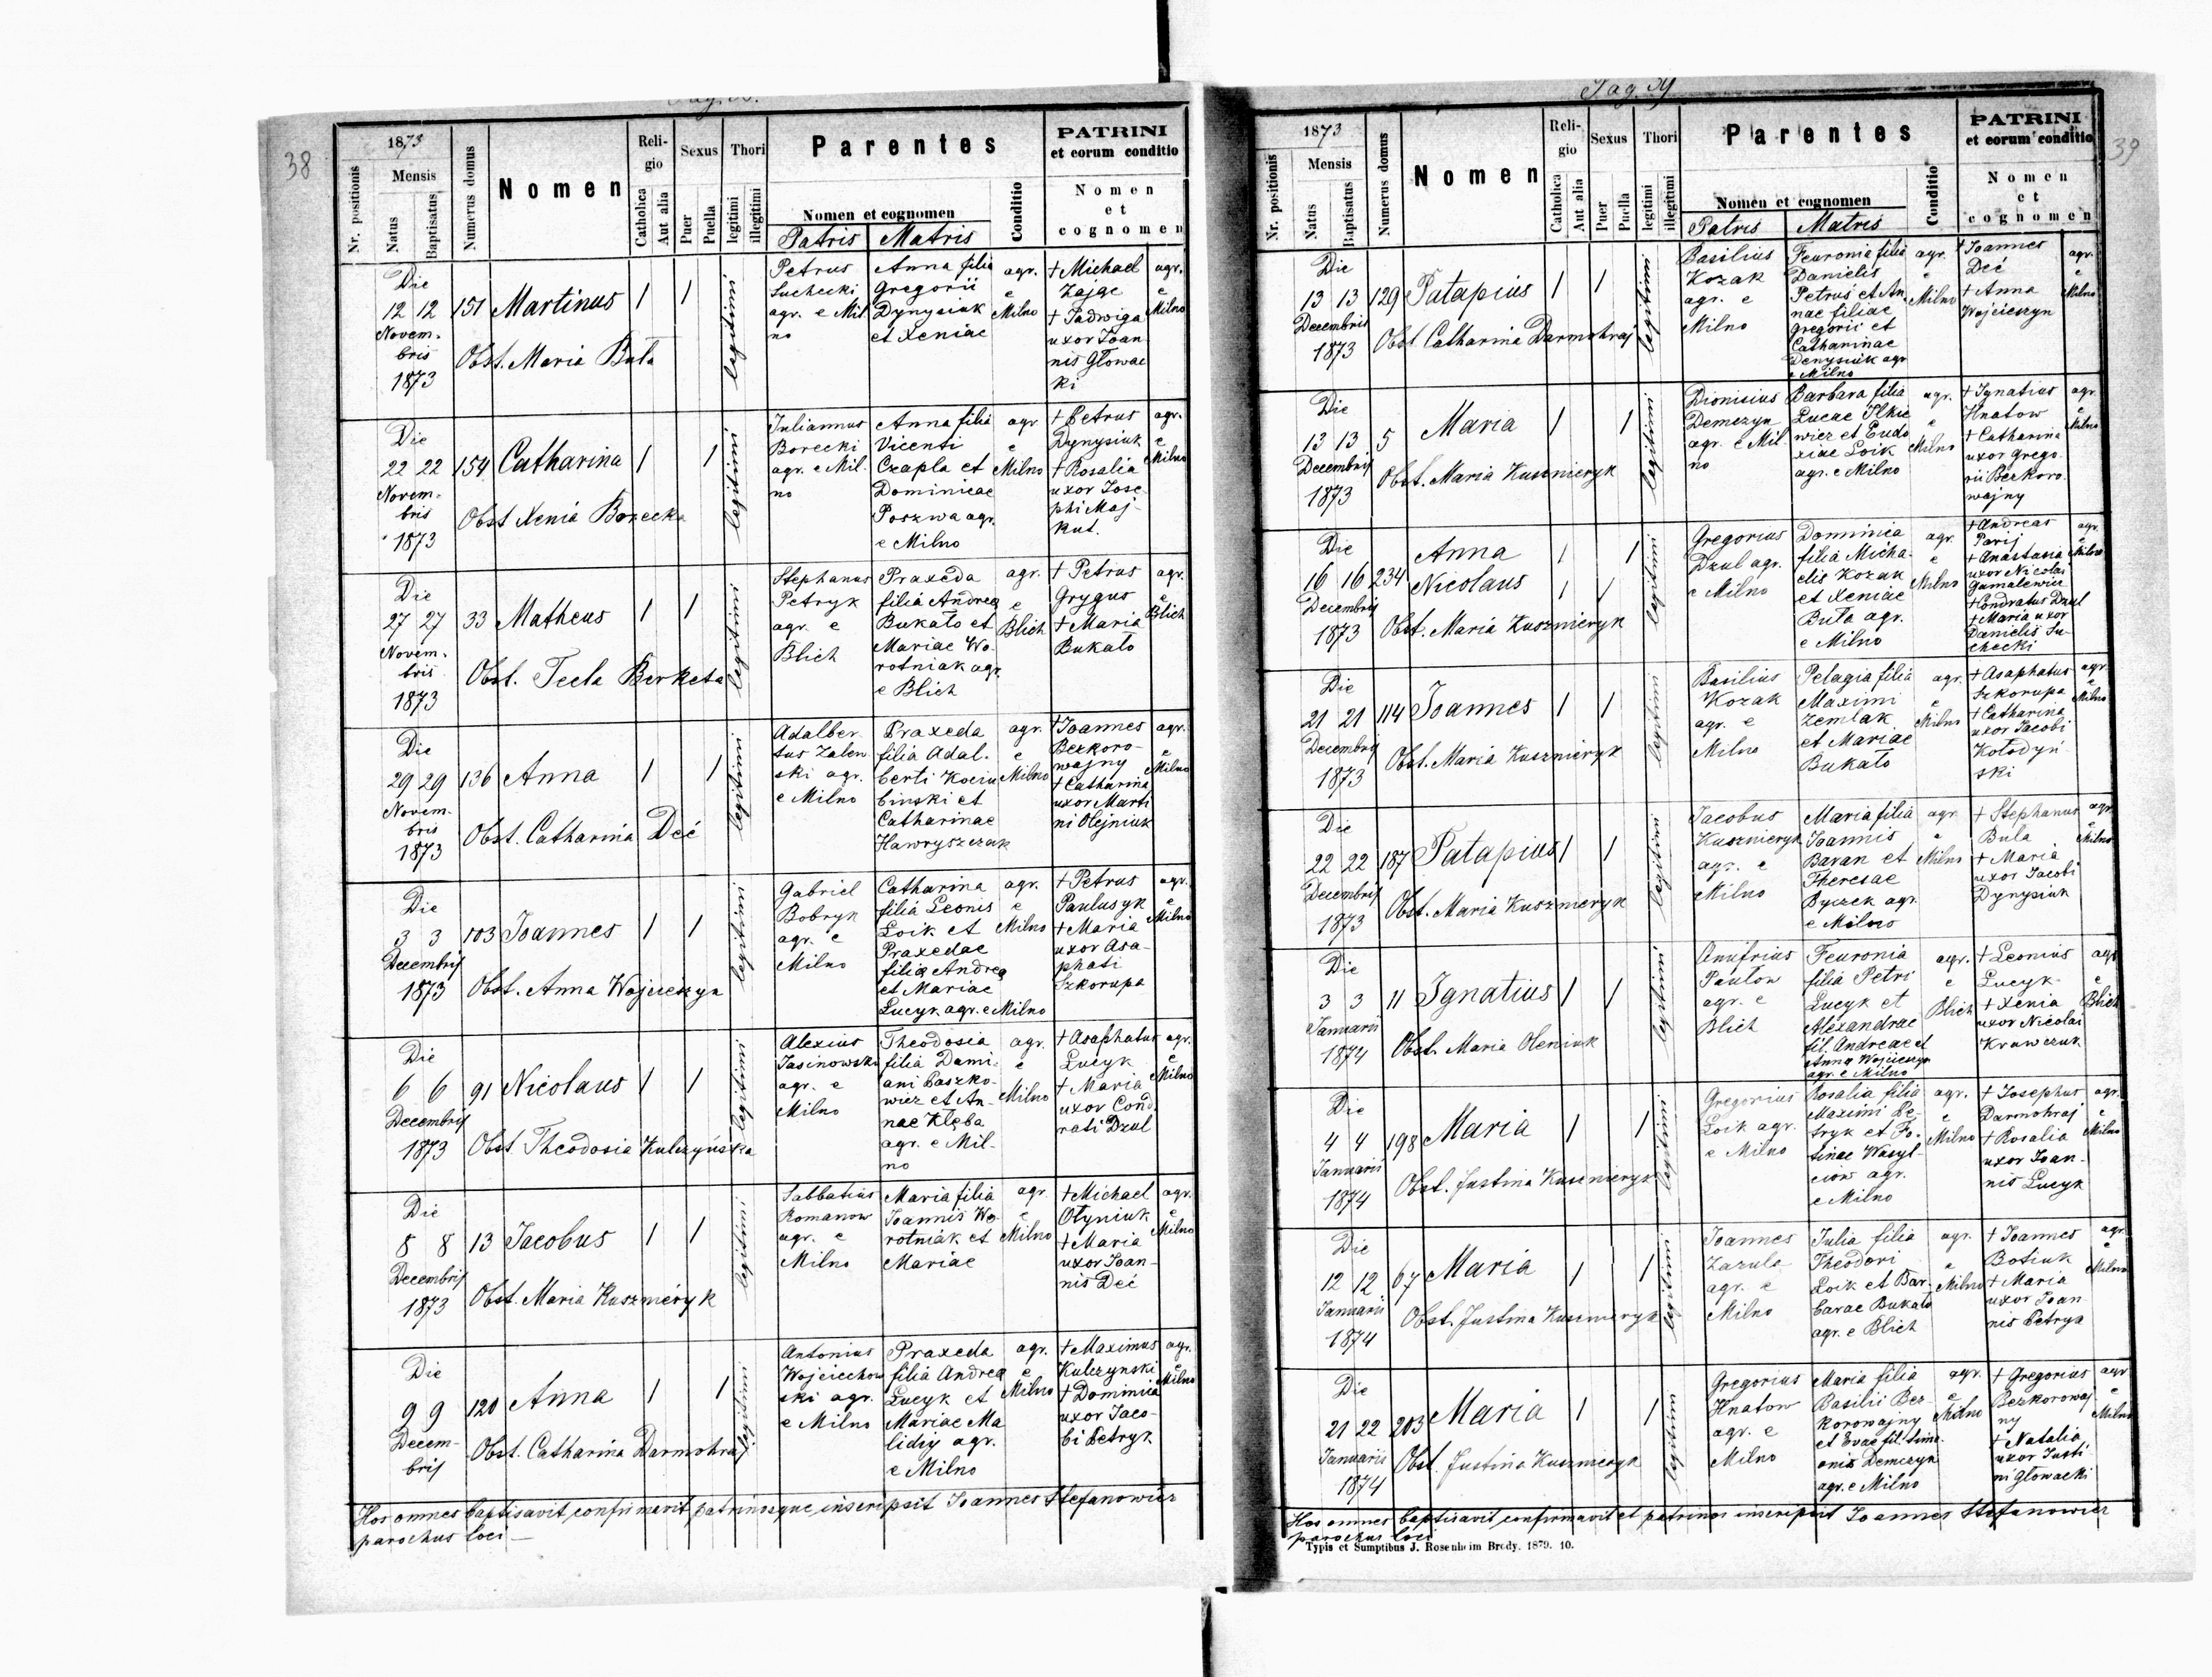 38
1873
Mensis
Nr. positionis
Natus
Baptisatus
Numerus domus
Nomen
Reli-
gio
Catholica
Aut alia
Sexus
Puer
Puella
Thori
legitimi
illegitimi
Parentes
Nomen et cognomen
Patris
Matris
Conditio
PATRINI
et eorum conditio
Nomen
et
cognomen
Die
12 12 151 Martinus 1 1
Novem-
bris
1873
Obst. Maria Bula
legitimi
Petrus
Suchecki
agr. e Mil
no
Anna filia
Gregorii
Dynysiuk
et Xeniae
agr.
e
Milno
+ Michael
Zajac
+ Jadwiga
uxor Joan
nis Głowac
ki
agr.
e
Milno
Die
22 22 154 Catharina 1 1
Novem-
bris
1873
Obst Xenia Borecka
legitimi
Juliannus
Borecki
agr. e Mil-
no
Anna filia
Vicenti
Czapla et
Dominicae
Poszwa agr.
e Milno
agr
e
Milno
+ Petrus
Dynysiuk
+ Rosalia
uxor Jose
phi Maj-
kut.
agr.
e
Milno
Die
27 27 33 Matheus 1 1
Novem-
bris
1873
Obst. Tecla Berketa
legitimi
Stephanus
Petryk
agr. e
Blich
Praxeda
filia Andrea
Bukato et
Mariae Wo-
rotniak agr.
e Blich
agr.
e
Blich
+ Petrus
Grygus
+ Maria
Bukato
agr.
e
Blich
Die
29 29 136 Anna 1 1
Novem-
bris
1873
Obst. Catharina Deć
legitimi
Adalber
tus Zalew
ski agr.
e Milno
Praxeda
filia Adal-
berti Kociu
binski et
Catharinae
Hawryszczak
agr.
e
Milno
+ Joannes
Bezkoro-
wajny
+ Catharina
uxor Marti
ni Olejniuk
agr.
e
Milno
Die
3 3 103 Joannes 1 1
Decembris
1873
Obst. Anna Wojcieszyn
legitimi
Gabriel
Bobryk
agr. e
Milno
Catharina
filia Leonis
Loik et
Praxedae
filia Andrea
et Mariae
Lucyk agr. e Milno
agr.
e
Milno
+ Petrus
Paulusyk
+ Maria
uxor Asa-
phati
Szkorupa
agr.
e
Milno
Die
6 6 91 Nicolaus 1 1
Decembris
1873
Obst. Theodosia Kulczyńska
legitimi
Alexius
Jasinowski
agr. e
Milno
Theodosia
filia Dami-
ani Paszko-
wicz et An-
nae Kłęba
agr. e Mil-
no
agr.
e
Milno
+ Asaphatus
Lucyk
+ Maria
uxor Cond
rati Dzul
agr.
e
Milno
Die
8 8 13 Jacobus 1 1
Decembris
1873
Obst. Maria Kuszmiéryk
legitimi
Sabbatius
Romanow
agr. e
Milno
Maria filia
Joannis Wo-
rotniak et
Mariae
agr.
e
Milno
+ Michael
Ołyniuk
+ Maria
uxor Joan-
nis Deć
agr.
e
Milno
Die
9 9 120 Anna 1 1
Decem-
bris
Obst. Catharina Darmohraj
legitimi
Antonius
Wojciechow
ski agr.
e Milno
Praxeda
filia Andrea
Lucyk et
Mariae Ma
lidiy agr.
e Milno
agr.
e
Milno
+ Maximus
Kulczynski
+ Dominica
uxor Jaco-
bi Petryk
agr.
e
Milno
Hos omnes baptisavit confirmavit patrinosque inscripsit Joannes Stefanowicz
parochus loci
Pag. 39
39
1873
Mensis
Nr. positionis
Natus
Baptisatus
Numerus domus
Nomen
Reli-
gio
Catholica
Aut alia
Sexus
Puer
Puella
Thori
legitimi
illegitimi
Parentes
Nomen et cognomen
Patris
Matris
Conditio
PATRINI
et eorum conditio
Nomen
et
cognomen
Die
13 13 129 Patapius 1 1
Decembris
1873
Obst. Catharina Darmohraj
legitimi
Basilius
Kozak
agr. e
Milno
Feuronia filia
Danielis
Petruś et An.
nae filiae
Gregorii et
Catharinae
Denysiuk agr
e Milno
agr.
e
Milno
+ Joannes
Deć
+ Anna
Wojcieszyn
agr.
e
Milno
Die
13 13 5 Maria 1 1
Decembris
1873
Obst. Maria Kuszmieryk
legitimi
Dionisius
Demczyn
agr. e Mil-
no
Barbara filia
Lucae Ilkie
wicz et Eudo
xiae Loik
agr. e Milno
agr.
e
Milno
+ Ignatius
Hnatow
+ Catharina
uxor Grego
rii Bezkoro.
wajny
agr.
e
Milno
Die
16 16 234 Anna 1 1
Nicolaus 1 1
Decembris
1873
Obst. Maria Kuszmieryk
legitimi
Gregorius
Dzul agr.
e Milno
Dominica
filia Micha-
elis Kozak
et Xeniae
Buła agr.
e Milno
agr.
e
Milno
+ Andreas
Parij
+ Anastasia
uxor Nicolai
Gumalewicz
+ Condratus Dzul
+ Maria uxor
Danielis Su-
checki
agr.
e
Milno
Die
21 21 114 Joannes 1 1
Decembris
1873
Obst. Maria Kuszmieryk
legitimi
Basilius
Kozak
agr. e
Milno
Pelagia filia
Maximi
Zemlak
et Mariae
Bukato
agr.
e
Milno
+ Asaphatus
Szkorupa
+ Catharina
uxor Jacobi
Kołodyń
ski
agr
e
Milno
Die
22 22 187 Patapius 1 1
Decembris
1873
Obst. Maria Kuszmieryk
legitimi
Jacobus
Kuszmieryk
agr. e
Milno
Maria filia
Joannis
Baran et
Theresae
Byczek agr.
e Milno
agr
e
Milno
+ Stephanus
Bula
+ Maria
uxor Jacobi
Dynysiuk
agr.
e
Milno
Die
3 3 11 Ignatius 1 1
Januarii
1874
Obst. Maria Oleniuk
legitimi
Anufrius
Pawłow
agr. e
Blich
Feuronia
filia Petri
Lucyk et
Alexandrae
fil. Andreae et
Anna Wojcieszyn
agr. e Milno
agr.
e
Blich
+ Leonius
Lucyk
+ Xenia
uxor Nicolai
Krawczuk
agr
e
Blich
Die
4 4 198 Maria 1 1
Januarii
1874
Obst. Justina Kuszmieryk
legitimi
Gregorius
Loik agr.
e Milno
Rosalia filia
Maximi Pe-
tryk et Fo-
tinae Wasyl-
ciow agr.
e Milno
agr.
e
Milno
+ Josephus
Darmohraj
+ Rosalia
uxor Joan-
nis Lucyk
agr.
e
Milno
Die
12 12 67 Maria 1 1
Januarii
1874
Obst. Justina Kuszmieryk
legitimi
Joannes
Zazula
agr. e
Milno
Julia filia
Theodori
Loik et Bar-
barae Bukato
agr. e Blich
agr.
e
Milno
+ Joannes
Botiuk
+ Maria
uxor Joan
nis Petryk
agr
e
Milno
Die
21 22 203 Maria 1 1
Januarii
1874
Obst. Justina Kuszmieryk
legitimi
Gregorius
Hnatow
agr. e
Milno
Maria filia
Basilii Bez-
korowajny
et Evae fil. Sime
onis Demczyn
agr. e Milno
agr.
e
Milno
+ Gregorius
Bezkorowaj
ny
+ Natalia
uxor Justi
ni Głowacki
agr
e
Milno
Hos omnes baptisavit confirmavit et patrinos inscripsit Joannes Stefanowicz
parochus loci
Typis et Sumptibus J. Rosenheim Brody. 1879. 10.